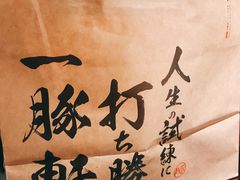 人生の試練に
打ち勝
一豚軒